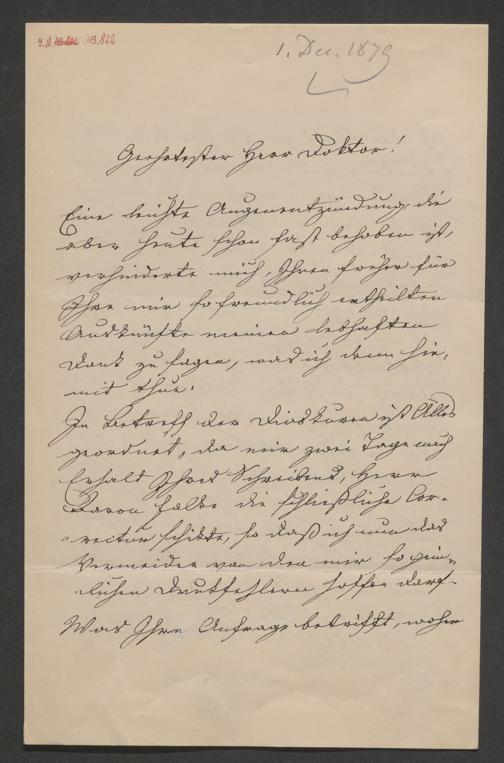 I.N. 113.822
1. Dec. 1879
Geehrtester Herr Doktor!
Eine leichte Augenentzündung, die
aber heute schon fast behoben ist,
verhinderte mich, Ihnen früher für
Ihre mir so freundlich ertheilten
Auskünfte meinen lebhaften
Dank zu sagen, was ich denn hie„
mit thue.
In Betreff der Dioskuren ist Alles
geordnet, da mir zwei Tage nach
Erhalt Ihres Schreibens, Herr
Baron Falke die schließliche Cor„
„rectur schickte, so daß ich nun das
Vermeiden von den mir so pein„
lichen Druckfehlern hoffen darf.
Was Ihre Anfrage betrifft, woher